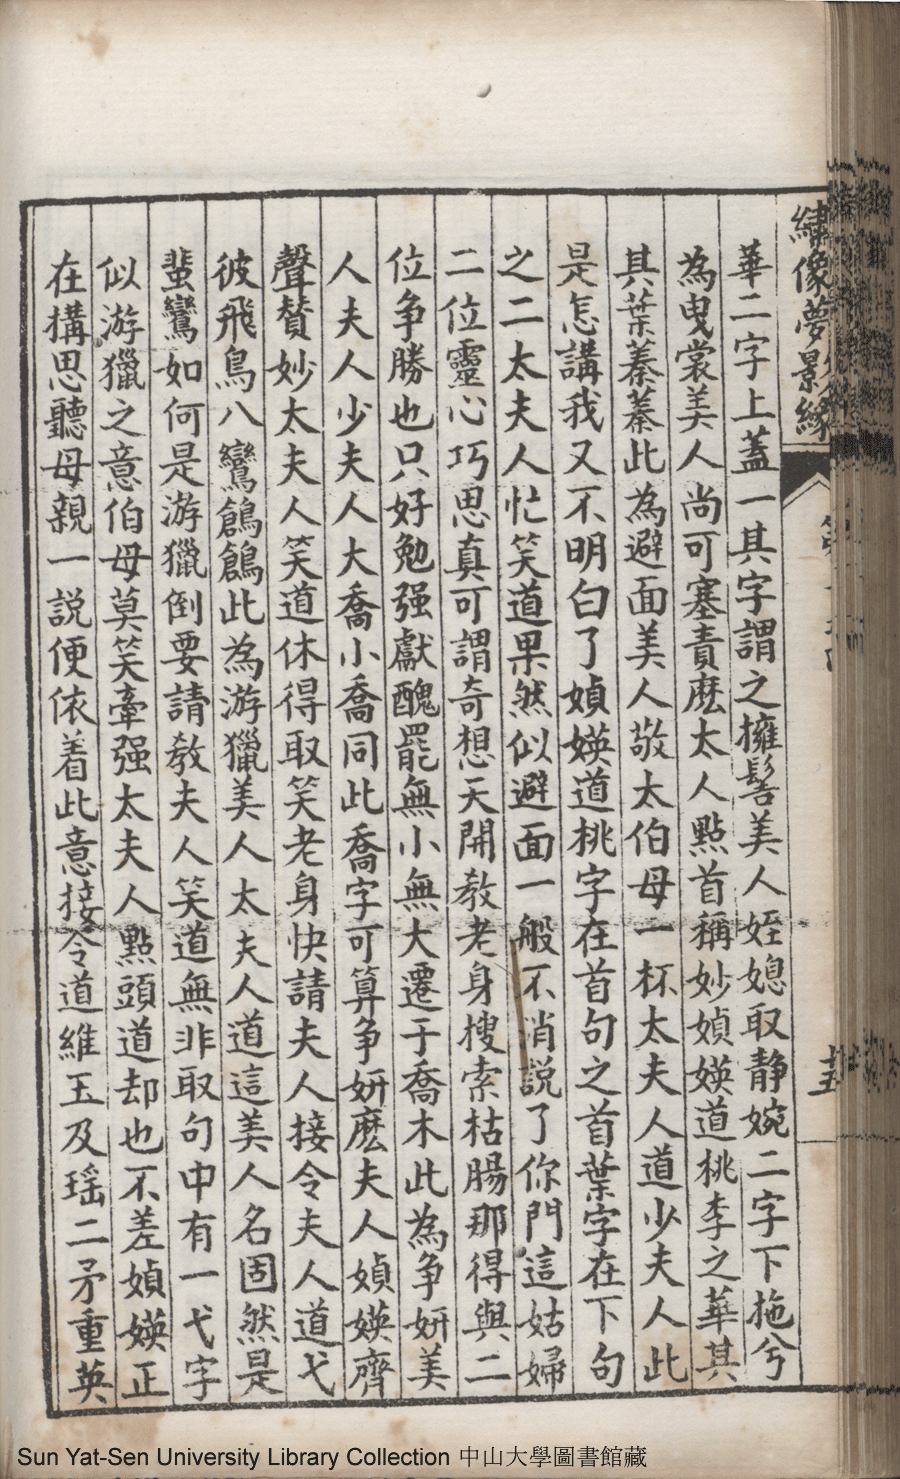 繡像夢景緣
華二字上蓋一其字謂之擁髻美人姪媳取静婉二字下拖兮
為曳裳美人尚可塞責麽太人點首稱妙媜媖道桃李之華其
其葉蓁蓁此為避面美人敬太伯母一杯太夫人道少夫人此
是怎講我又不明白了媜媖道桃字在首句之首葉字在下句
之二太夫人忙笑道果然似避面一般不消説了你門這姑婦
二位靈心巧思真可謂奇想天開教老身搜索枯腸那得與二
位争勝也只好勉强獻醜罷無小無大遷于喬木此為争妍美
人夫人少夫人大喬小喬同此喬字可算争妍麽夫人媜媖齊
聲賛妙太夫人笑道休得取笑老身快請夫人接令夫人道弋
彼飛鳥八鸞鶬鶬此為游獵美人太夫人道這美人名固然是
蜚鸞如何是游獵倒要請教夫人笑道無非取句中有一弋字
似游獵之意伯母莫笑牽强太夫人點頭道却也不差媜媖正
在搆思聽母親一説便依着此意接令道維玉及瑶二矛重英
Sun Yat-Sen University Library Collection 中山大學圖書館藏